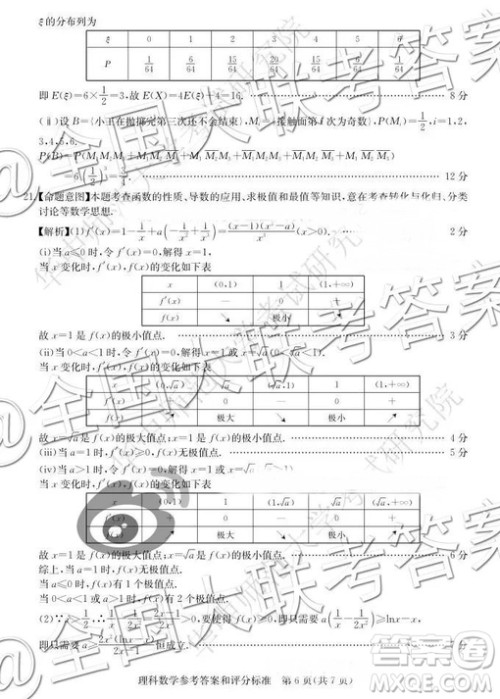 ξ的分布列为
ξ 0 1 2 3 4 5 6
P 1/64 6/64 15/64 20/64 15/64 6/64 1/64
即 E(ξ)=6×1/2=3,故 E(X)=4E(ξ)+4=16. 8分
(ⅱ)设 B={小王在抛掷完第三次还不会结束},
为奇数},P(M_i)=1/2,i=1,2,
3,4,5,6.
12分
21.【命题意图】本题考查函数的性质、导数的应用、求极值和最值等知识,意在考查转化与化归、分类
讨论等数学思想.
【解析】(1)f′(x)=1-1/x+a(-1/x²+1/x³)=(x-1)(x²-a)/x³(x>0). 2分
(i)当 a≤0 时,令 f′(x)=0,解得 x=1
当 x 变化时,f′(x),f(x)的变化如下表
x (0,1) 1 (1,+∞)
f′(x) — 0 +
f(x) ↘ 极小
故 x=1 是 f(x)的极小值点. 3分
(ii)当 0<a<1 时,令 f′(x)=0,解得 x=1 或 x=√a(0<√a<1).
当 x 变化时,f′(x),f(x)的变化如下表
x (0,√a) √a (√a,1) 1 (1,+∞)
f′(x)
f(x) 极大 ↘ 极小
故 x=√a 是 f(x)的极大值点;x=1 是 f(x)的极小值点. 4分
(iii)当 a=1 时,f′(x)≥0,f(x)无极值点. 5分
(iv)当 a>1 时,令 f′(x)=0,解得 x=1 或 x=√a
当 x 变化时,f′(x),f(x)的变化如下表
x (0,1) 1 (1,√a) √a (√a,+∞)
f′(x) 0 — 0 +
f(x) 极大 ↘ 极小
故 x=1 是 f(x)的极大值点;x=√a 是 f(x)的极小值点. 6分
综上,当 a=1 时,f(x)无极值点.
当 a≤0 时,f(x)有 1 个极值点.
当 0<a<1 或 a>1 时,f(x)有 2 个极值点.
(2)∵x>1/2,∴1-1/2x=(2x-1)/2x>0,要使得 f(x)≥0,即只需要 a(1/x-1/2x²)≥ln x-x,
即只需要 a≥2x²(ln x-x)/(2x-1)恒成立.
理科数学参考答案和评分标准 第 6 页(共 7 页)
@全国大联考答案
@全国大联考答案
@全国大联考答案
答案圈
MXQE.COM